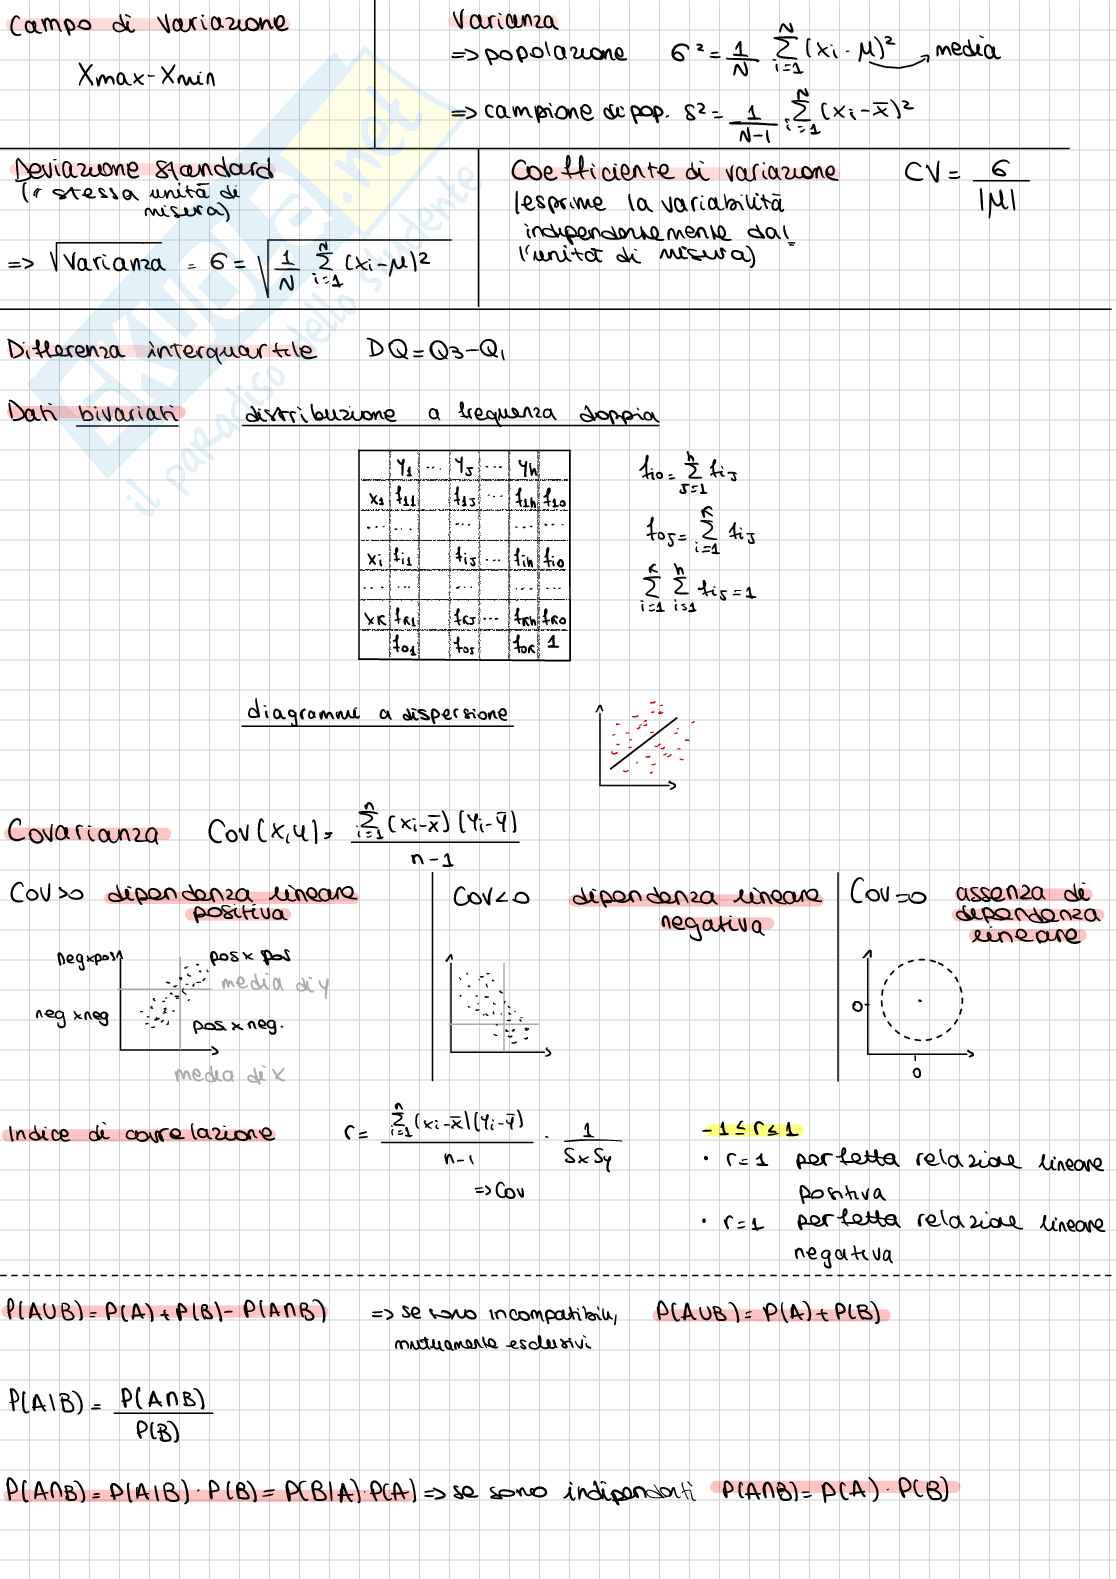 Campo di Variazione
Xmax-Xmin
Varianza
=> popolazione σ² = 1/N Σ(i=1..N) (xi - μ)² → media
=> campione di pop. s² = 1/(N-1) · Σ(i=1..N) (xi - x̄)²
Deviazione Standard
(↑ stessa unità di
misura)
=> √Varianza = σ = √(1/N Σ(i=1..N) (xi - μ)²)
Coefficiente di variazione CV = σ/|μ|
(esprime la variabilità
indipendentemente dal
l'unità di misura)
Differenza interquartile DQ = Q3 - Q1
Dati bivariati distribuzione a frequenza doppia
y1 ... yj ... yh
x1 f11 f1j ... f1h f10
... ... ... ... ...
xi fi1 fij ... fih fi0
... ... ... ... ...
xk fk1 fkj ... fkh fk0
f01 f0j f0k 1
fi0 = Σ(j=1..h) fij
f0j = Σ(i=1..k) fij
Σ(i=1..k) Σ(i=1..h) fij = 1
diagrammi a dispersione
Covarianza Cov(x,y) = Σ(i=1..n) (xi - x̄)(yi - ȳ) / (n-1)
Cov>0 dipendenza lineare
positiva
neg x pos pos x pos
media di y
neg x neg pos x neg.
media di x
Cov<0 dipendenza lineare
negativa
Cov=0 assenza di
dipendenza
lineare
0
0
Indice di correlazione r = Σ(i=1..n) (xi - x̄)(yi - ȳ) / (n-1) · 1/(Sx Sy)
=> Cov
-1 ≤ r ≤ 1
· r=1 perfetta relazione lineare
positiva
· r=1 perfetta relazione lineare
negativa
P(A∪B) = P(A) + P(B) - P(A∩B) => se sono incompatibili, P(A∪B) = P(A) + P(B)
mutuamente esclusivi
P(A|B) = P(A∩B) / P(B)
P(A∩B) = P(A|B) · P(B) = P(B|A) · P(A) => se sono indipendenti P(A∩B) = P(A) · P(B)
skuola.net
il paradiso dello studente